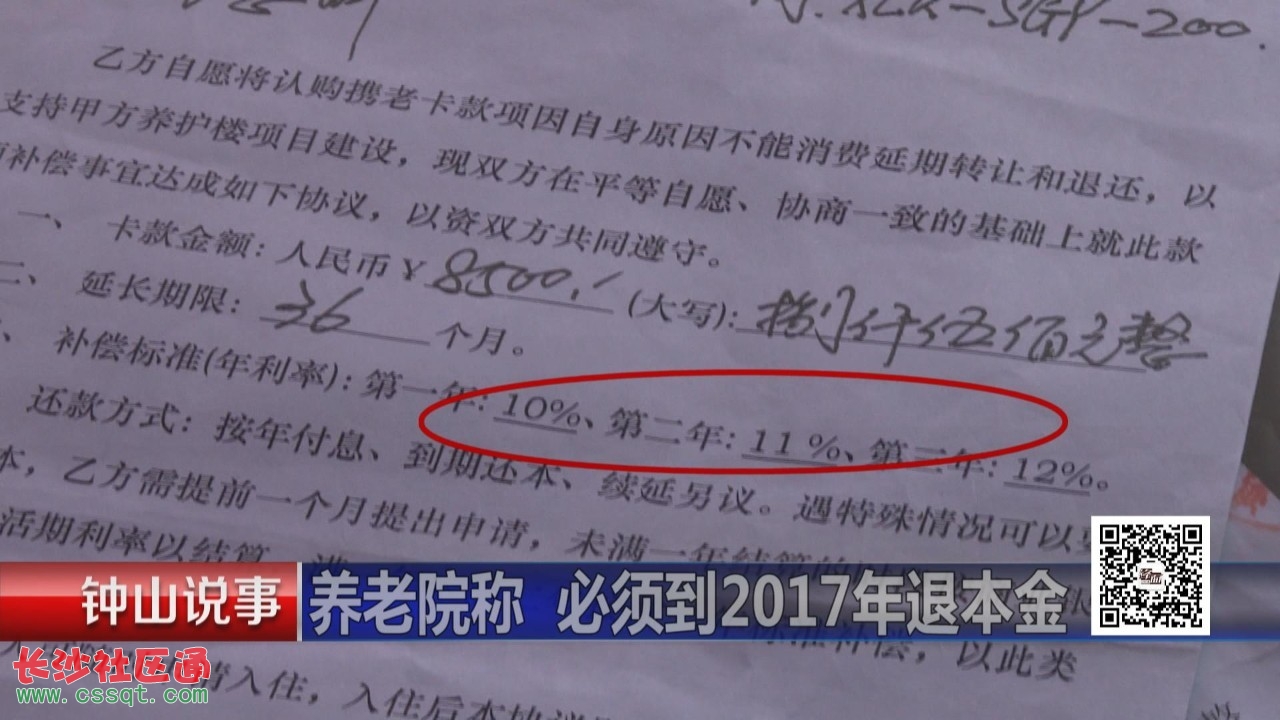 XLK-SGY-200.
乙方自愿将认购携老卡款项因自身原因不能消费延期转让和退还，以
支持甲方养护楼项目建设，现双方在平等自愿、协商一致的基础上就此款
补偿事宜达成如下协议，以资双方共同遵守。
一、 卡款金额：人民币￥8500.- (大写)：捌仟伍佰元整
二、 延长期限：36个月。
、 补偿标准(年利率)：第一年：10%、第二年：11%、第三年：12%。
还款方式：按年付息、到期还本、续延另议。遇特殊情况可以
本，乙方需提前一个月提出申请，未满一年结算的
活期利率以结算
补偿，以此类
入住，入住后本协议
钟山说事 养老院称 必须到2017年退本金
长沙社区通
www.cssqt.com